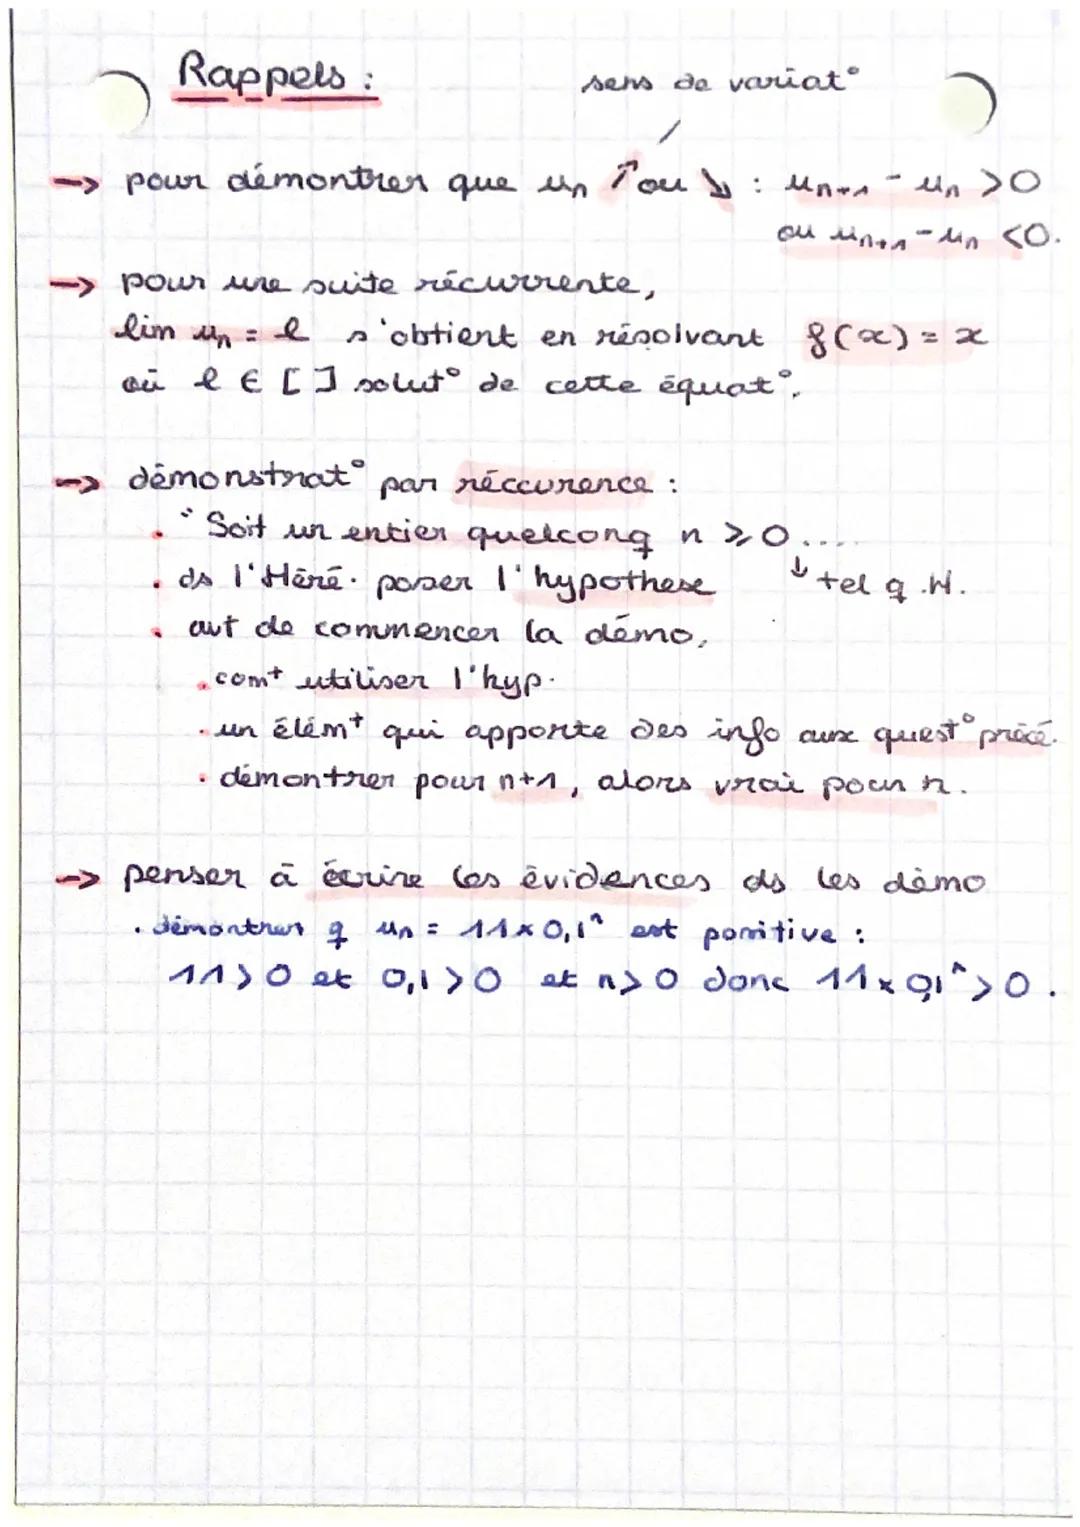 Rappels :
sens de variat°
→ pour démontrer que un ↗ ou ↘ : un+1 - un > 0
ou un+1 - un < 0.
→ pour une suite récurrente,
lim un = l s'obtient en résolvant f(x) = x
où l ∈ [ ] solut° de cette équat°.
→ démonstrat° par réccurence :
• "Soit un entier quelconq n ⩾ 0....
• ds l'Héré. poser l'hypothese ↓ tel q .H.
• avt de commencer la démo,
• comt utiliser l'hyp.
• un élémt qui apporte des info aux quest° précé.
• démontrer pour n+1, alors vrai pour n.
→ penser à écrire les évidences ds les démo
• démontrer q un = 11 × 0,1^n est positive :
11 > 0 et 0,1 > 0 et n > 0 donc 11 × 0,1^n > 0.